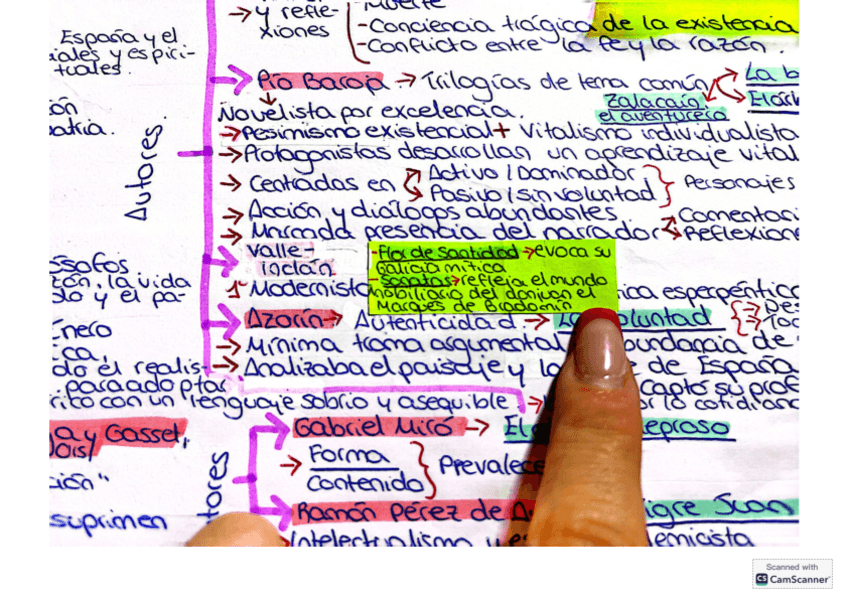 y refle-
xiones
Muerte
-Conciencia trágica de la existencia
-Conflicto entre la fe y la razón.
España y el
iales y espiri-
tuales.
ón
atria.
Autores.
Pío Baroja → Trilogías de tema común
La b
Zalacaín
el aventurero
Novelista por excelencia.
→ Pesimismo existencial + Vitalismo individualista
→ Protagonistas desarrollan un aprendizaje vital
→ Centradas en
Activo / Dominador
Pasivo / sin voluntad
Personajes
→ Acción y diálogos abundantes
→ Marcada presencia del narrador
Comentari
Reflexione
Valle-
inclán
-Flor de santidad → evoca su
Galicia mítica
-Sonatas → refleja el mundo
nobiliario del donjuan el
Marqués de Bradomín
1º Modernista
rica esperpéntica
ósofos
zón, la vida
sto y el pa-
Azorín → Autenticidad → La voluntad
énero
→ Mínima trama argumental
undancia de
ica,
do el realis-
→ Analizaba el paisaje y la
de España
para adoptar
captó su prof
rito con un lenguaje sobrio y asequible →
or lo cotidiano
a y Gasset,
Gabriel Miró → El
eproso
ción"
tores
→ Forma
Contenido
Prevalece
suprimen
Ramón Pérez de A
igre Juan
Intelectualismo y
emicista
Scanned with
CS CamScanner